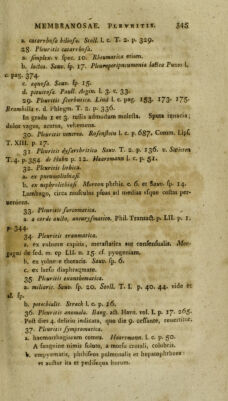 MEMBRANOSAE. PLEURITIS. 545
a. catarrhosa biliosa. Stoll. l. c. T. 2. p. 329.
28. Pleuritis catarrhosa.
a. simplex. v. spec. 10. Rheumatica etiam.
b. lactea. Sauv. sp. 17. Pleuroperipneumonia lactea Puzos l.
c. pag. 374.
c. aquosa. Sauv. sp. 15.
d. pituitosa. Paull. Aegin. l. 3. c. 33.
29. Pleuritis scorbutica. Lind l. c. pag. 153. 173. 175.
Brambilla v. d. Phlegm. T. 2. p. 336.
In gradu 1 et 3. tussis admodum molesta. Sputa tenacia;
dolor vagus, acutus, vehemens.
30. Pleuritis venerea. Rosenstein l. c. p. 687. Comm. Lips.
T. XIII. p. 17.
31. Pleuritis dysarthritica Sauv. T. 2. p. 136. v. Swieten
T. 4. p. 354. de Hahn p. 12. Haaremann l. c. p. 51.
32. Pleuritis hectica.
a. ex pneumolithiasi.
b. ex nephrolithiasi. Morton phthis. c. 6. et Sauv. sp. 14.
Lumbago, circa musculos psoas ad medias usque costas per-
veniens.
33. Pleuritis sarcomatica.
a. a corde aucto, aneurysmatico. Phil. Transact. p. LII. p. 1.
p. 344.
34. Pleuritis traumatica.
a. ex vulnere capitis, metastatica aut consensualis. Mor-
gagni de sed. m. ep LII. n. 15. cf. pyogeniam.
b. ex vulnere thoracis. Sauv. sp. 6.
c. ex laeso diaphragmate.
35. Pleuritis exanthematica.
a. miliaris. Sauv. sp. 20. Stoll. T. I. p. 40. 44. vide et
al. sp.
b. petechialis. Strack l. c. p. 16.
36. Pleuritis anomala. Bang. act. Havn. vol. I. p. 17. 265.
Post dies 4. deliria indicata, quo die 9. cessante, revertitur.
37. Pleuritis symptomatica.
a. haemorrhagiarum comes. Haaremann. l. c. p. 50.
A sanguine nimis soluto, a morsu crotali, colubris.
b. empyematis, phthiseos pulmonalis et hepatophthiseos:
et auctor ita et pedisequa horum.